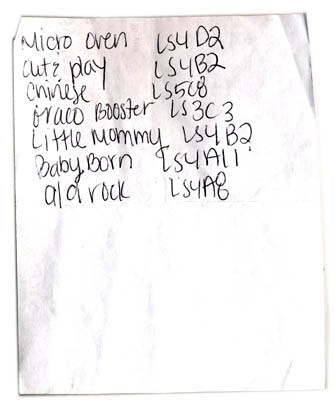 Micro Oven LS4D2
Cut & play LS4B2
Chinese LS5C8
Graco Booster LS3C3
Little Mommy LS4B2
Baby Born LS4A11
rock LS4A8